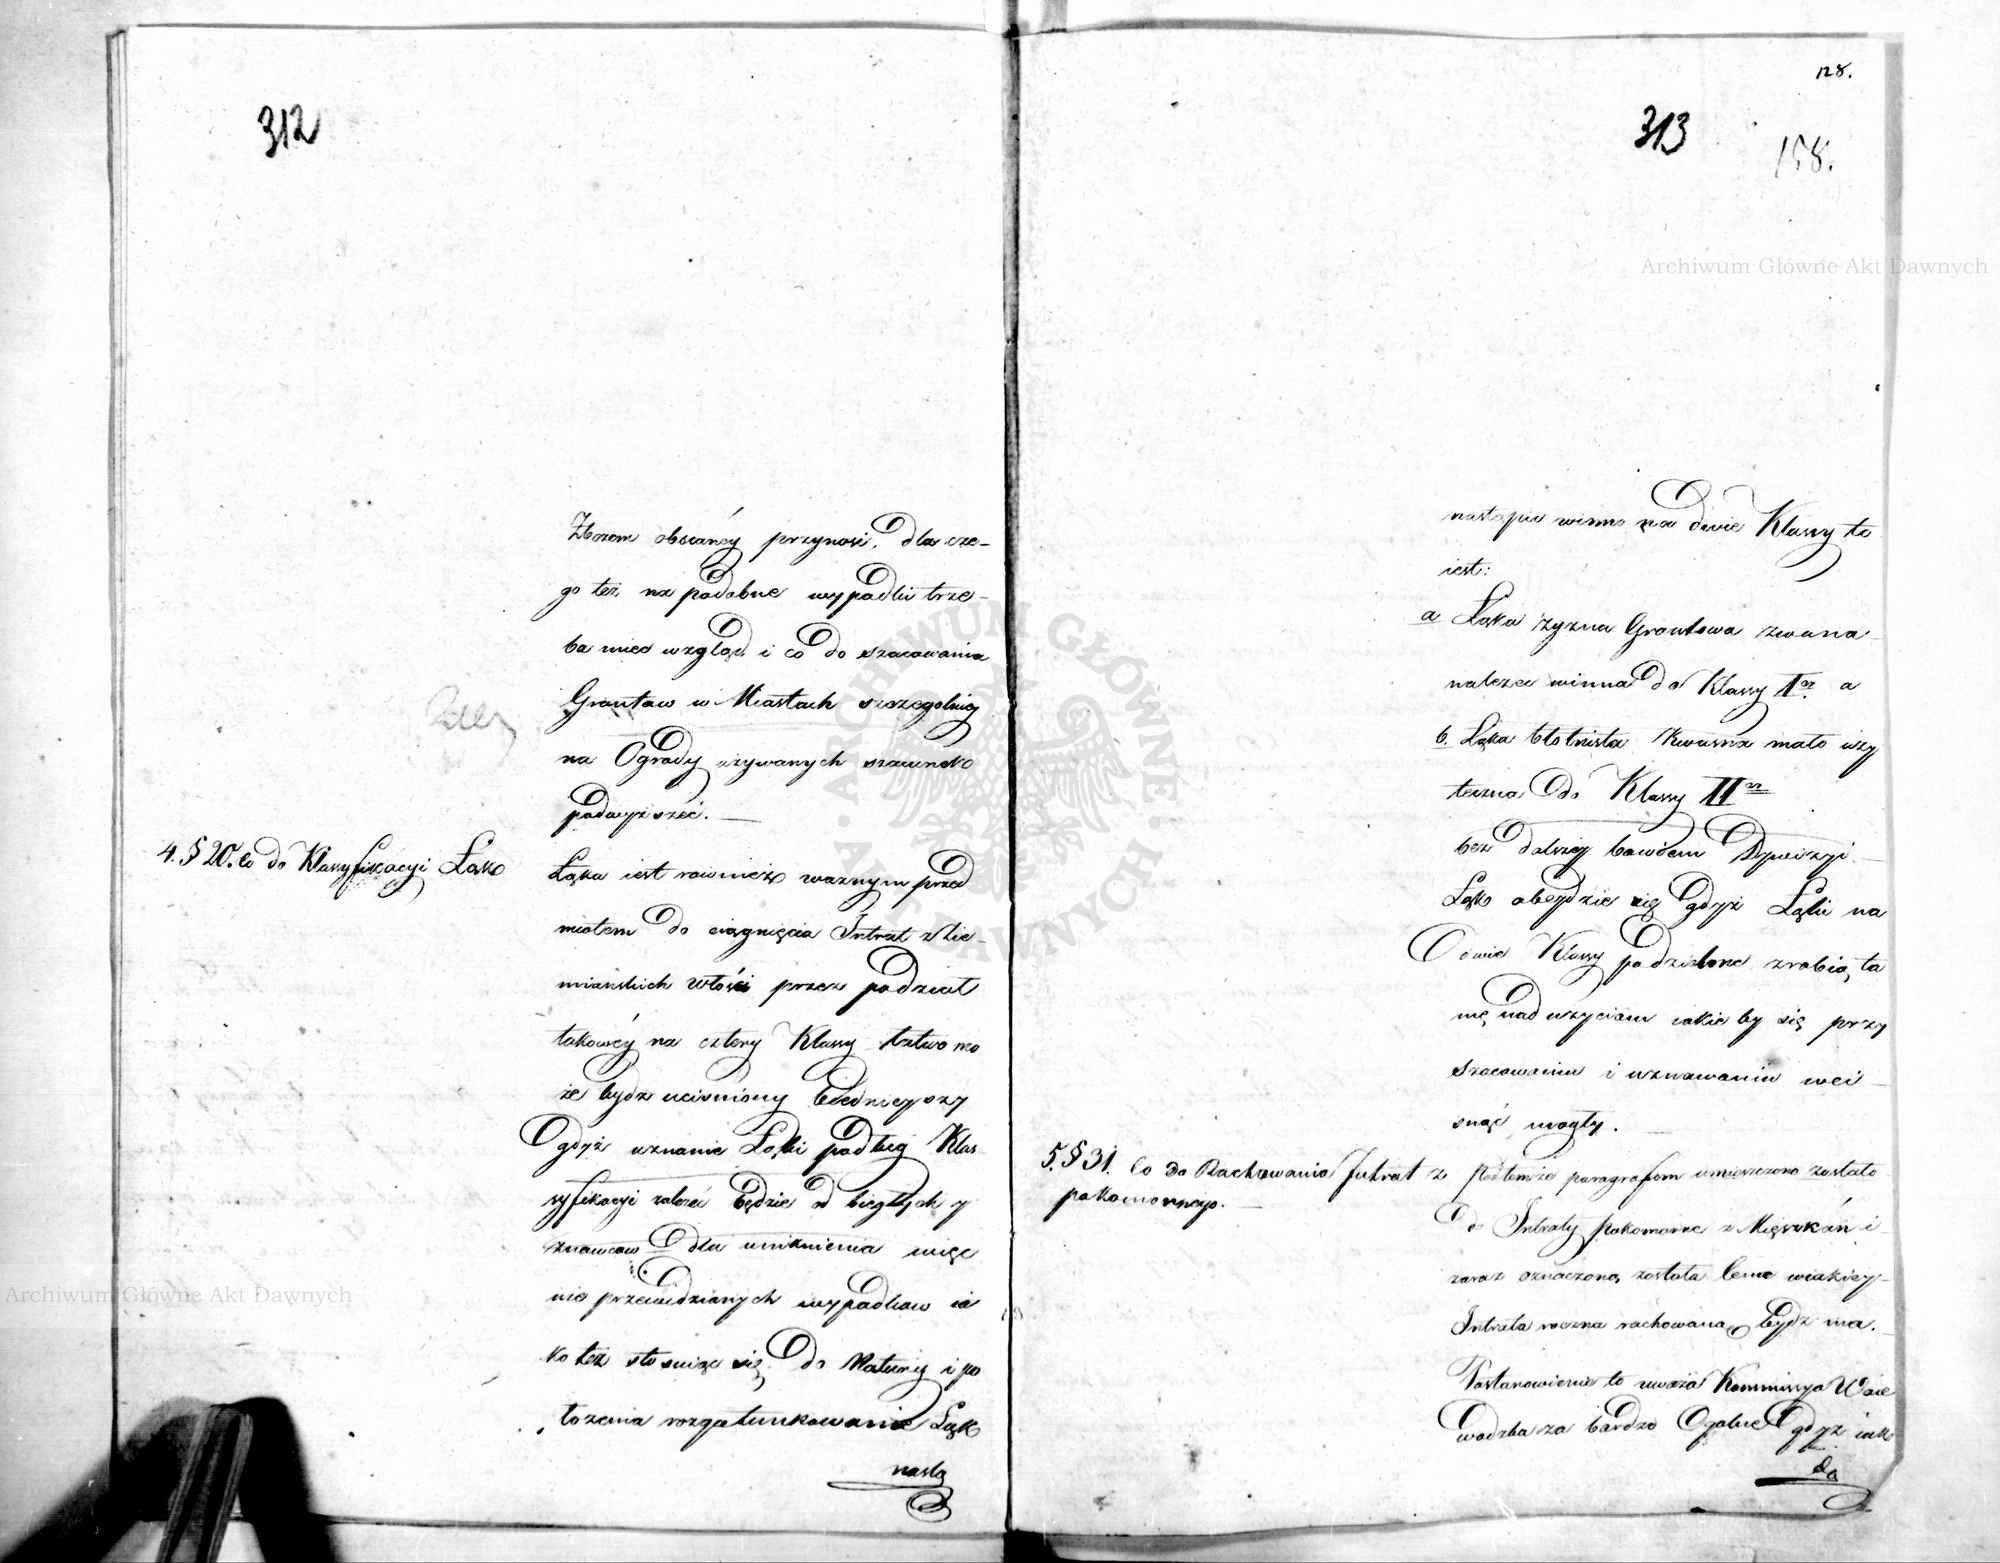 312
Zborem obsianéy przynosi, dla cze-
go też na podobne wypadki trze-
ba mieć wzgląd i co do szacowania
Gruntow w Miastach szczegolniey
na Ogrody używanych szacunek
podwyższeć.
4. § 20. Co do Klassyfikacyi Łąk
Łąka iest rownież ważnym przed
miotem do ciągnięcia Intrat z Zie-
miańskich Włości przez podział
takowéy na cztery Klassy łatwo mo
że bydz uciśniony biednieyszy
gdyż uznanie Łąki podług Klas
syfikacyi zależeć będzie od biegłych y
znawcow dla uniknienia więc
nie przewidzianych wypadkow ia
ko też stosuiąc się do Natury i po
łożenia rozgatunkowanie Łąk
nastą
128.
313
158.
nastąpić winno na dwie Klassy to
iest:
a Łąka żyzna Gruntowa zwana
należeć winna do Klassy I a
b. Łąka błotnista kwaśna mało uży
teczna do Klassy II
bez dalszey bowiem Dywizyi
Łąk obeydzie się gdyż Łąki na
dwie Klassy podzielone zrobią ta
mę nadużyciom iakie by się przy
szacowaniu i uznawaniu wci-
snąć mogły.
5. § 31. Co do Rachowania Intrat z
pokomornego.
Pod temże paragrafem umieszczono zostało
do Intraty pokomorne z Mięszkań i
zaraz oznaczona została Cena w iakiey
Intrata roczna rachowana bydz ma.
Postanowienie to uważa Kommissya Woie
wodzka za bardzo Ogolne gdyż iak
da
Archiwum Główne Akt Dawnych
Archiwum Główne Akt Dawnych
ARCHIWUM GŁÓWNE AKT DAWNYCH